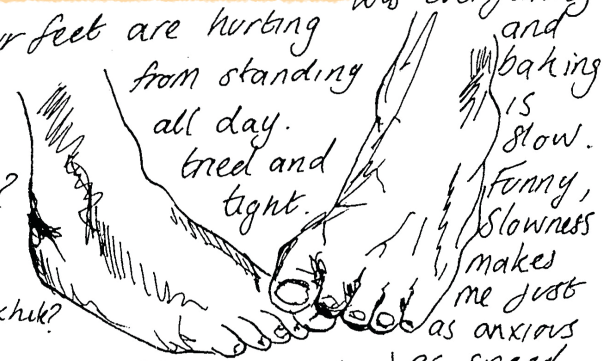 feet are hurting
from standing
all day.
tried and
tight.
and
baking
is
slow.
Funny,
Slowness
makes
me just
as anxious
as speed